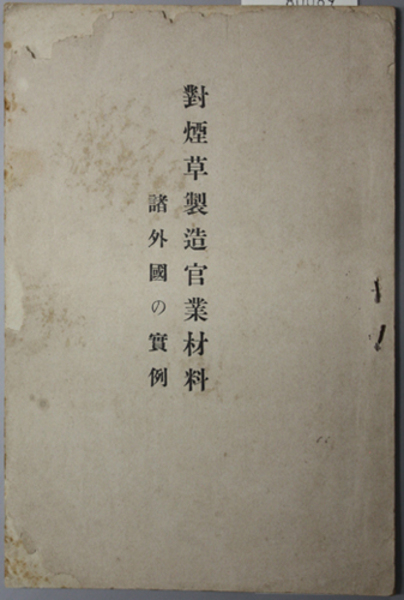 對煙草製造官業材料
諸外國の實例